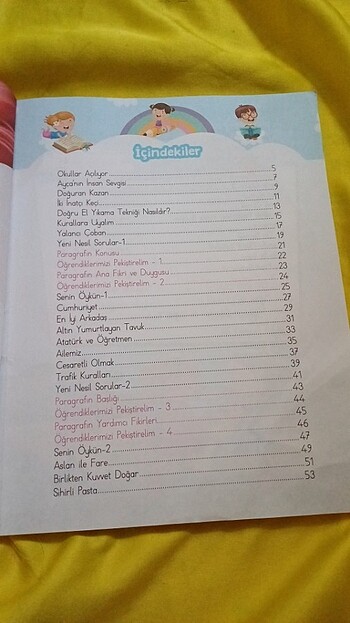 İçindekiler
Okullar Açılıyor 5
Ayça'nın İnsan Sevgisi 7
Doğuran Kazan 9
İki İnatçı Keçi 11
Doğru El Yıkama Tekniği Nasıldır? 13
Kurallara Uyalım 15
Yalancı Çoban 17
Yeni Nesil Sorular-1 19
Paragrafın Konusu 21
Öğrendiklerimizi Pekiştirelim - 1 22
Paragrafın Ana Fikri ve Duygusu 23
Öğrendiklerimizi Pekiştirelim - 2 24
Senin Öykün-1 25
Cumhuriyet 27
En İyi Arkadaş 29
Altın Yumurtlayan Tavuk 31
Atatürk ve Öğretmen 33
Ailemiz 35
Cesaretli Olmak 37
Trafik Kuralları 39
Yeni Nesil Sorular-2 41
Paragrafın Başlığı 43
Öğrendiklerimizi Pekiştirelim - 3 44
Paragrafın Yardımcı Fikirleri 45
Öğrendiklerimizi Pekiştirelim - 4 46
Senin Öykün-2 47
Aslan ile Fare 49
Birlikten Kuvvet Doğar 51
Sihirli Pasta 53